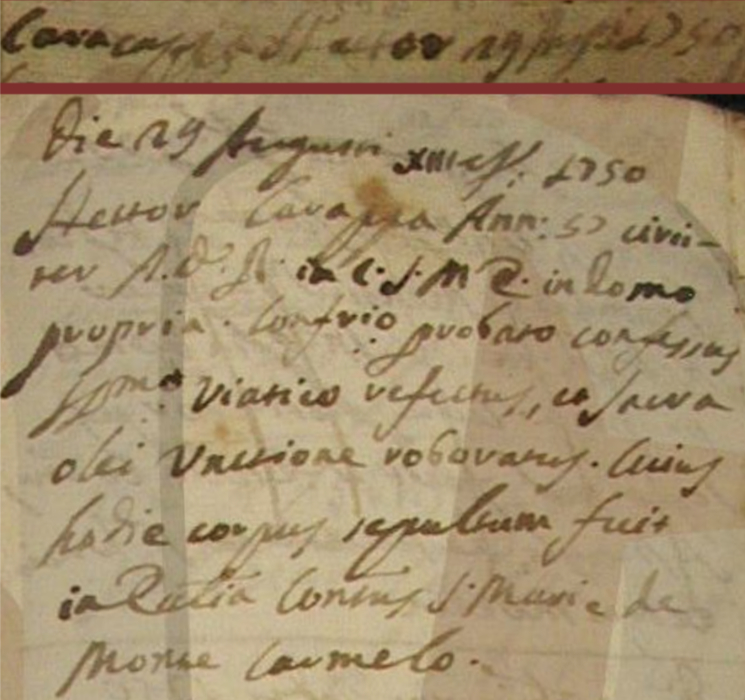 Caracappa Hettor 29 1750
Die 29 Augusti XIII ess: 1750
Hettor Carappa Ann: 57 circi-
ter A. D. R. in C. S. M. E. in domo
propria. Confrio probato confessus
SSmo Viatico refectus, et sacra
olei Unctione roboratus. Cuius
hodie corpus sepultum fuit
in Eccia Contus S. Marie de
Monte Carmelo.